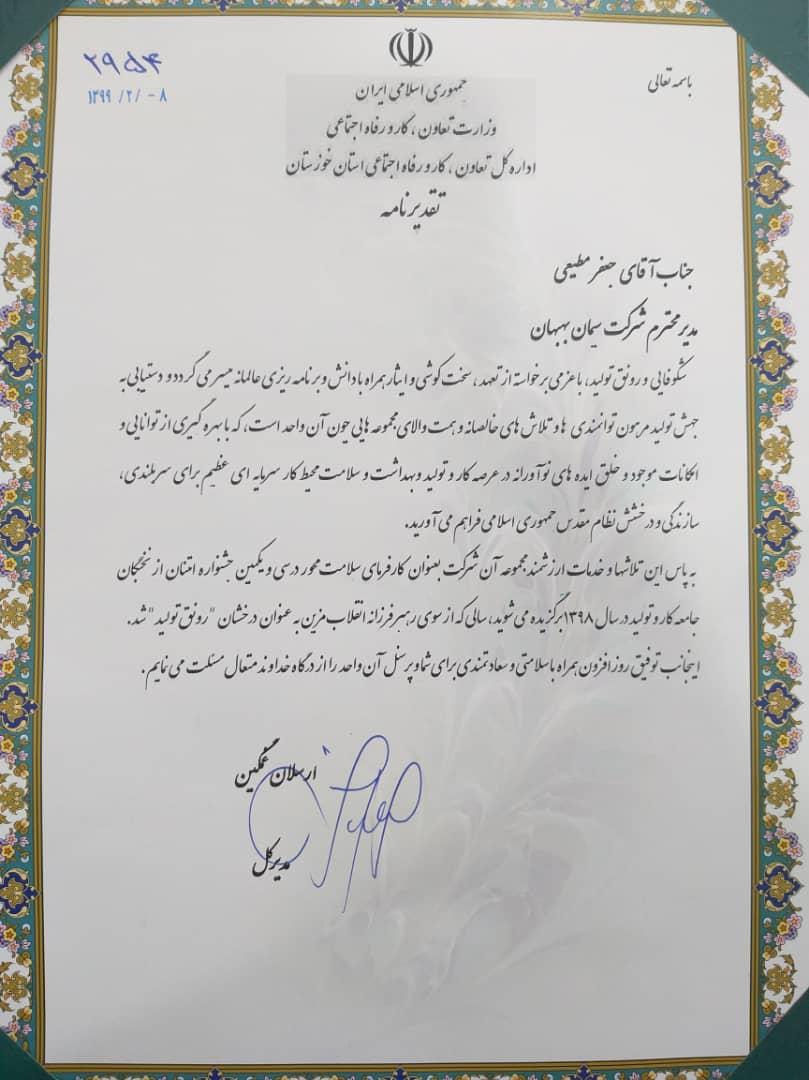 باسمه تعالی
۲۹۵۴
۱۳۹۹ /۲/ -۸
جمهوری اسلامی ایران
وزارت تعاون ، کار و رفاه اجتماعی
اداره کل تعاون ، کار و رفاه اجتماعی استان خوزستان
تقدیرنامه
جناب آقای جعفر مطیعی
مدیر محترم شرکت سیمان بهبهان
شکوفایی و رونق تولید، با عزمی برخواسته از تعهد ، سخت کوشی و ایثار همراه با دانش و برنامه ریزی عالمانه میسر می گردد و دستیابی به
جهش تولید مرهون توانمندی ها و تلاش های خالصانه و همت والای مجموعه هایی چون آن واحد است، که با بهره گیری از توانایی و
امکانات موجود و خلق ایده های نوآورانه در عرصه کار و تولید و بهداشت و سلامت محیط کار سرمایه ای عظیم برای سربلندی،
سازندگی و درخشش نظام مقدس جمهوری اسلامی فراهم می آورید.
به پاس این تلاشها و خدمات ارزشمند مجموعه آن شرکت بعنوان کارفرمای سلامت محور در سی و یکمین جشنواره امتنان از نخبگان
جامعه کار و تولید در سال ۱۳۹۸ برگزیده می شوید، سالی که از سوی رهبر فرزانه انقلاب مزین به عنوان درخشان "رونق تولید" شد.
اینجانب توفیق روز افزون همراه با سلامتی و سعادتمندی برای شما و پرسنل آن واحد را از درگاه خداوند متعال مسئلت می نمایم.
ارسلان غمگین
مدیرکل